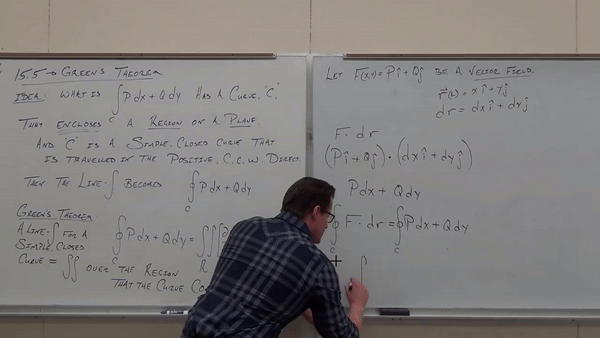 15.5 → GREEN'S THEOREM
IDEA: WHAT IS ∫_C Pdx + Qdy HAS A CURVE, 'C'
THAT ENCLOSES A REGION ON A PLANE,
AND 'C' IS A SIMPLE, CLOSED CURVE THAT
IS TRAVELLED IN THE POSITIVE, C.C.W. DIRECT.
THEN THE LINE-∫ BECOMES ∮_C Pdx + Qdy
GREEN'S THEOREM:
A LINE-∫ FOR A
SIMPLE, CLOSED
CURVE = ∬ OVER THE REGION
THAT THE CURVE
∮_C Pdx + Qdy = ∬_R [∂
LET F(x,y) = Pî + Qĵ BE A VECTOR FIELD.
r⃗(t) = xî + yĵ
dr = dxî + dyĵ
F · dr
(Pî + Qĵ) · (dxî + dyĵ)
Pdx + Qdy
∮_C F · dr = ∮_C Pdx + Qdy
∫